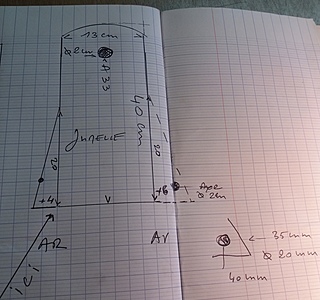 13cm
Ø2cm
A 33
40cm
JUMELLE
20
20
+4
+6
Axe
Ø 2cm
AR
AV
ici
35mm
Ø 20mm
40mm